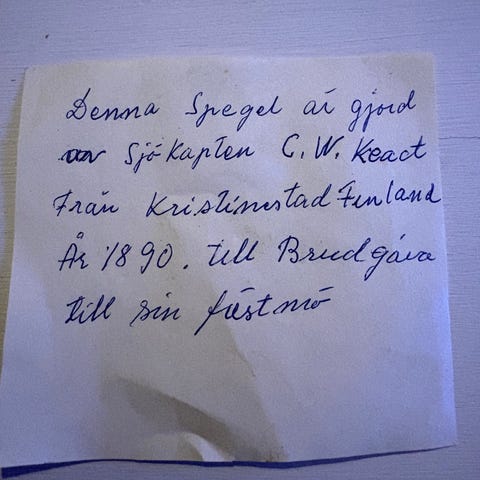 Denna Spegel är gjord
av Sjökapten C. W.
Från Kristinestad Finland
År 1890. till Brudgåva
till sin fästmö